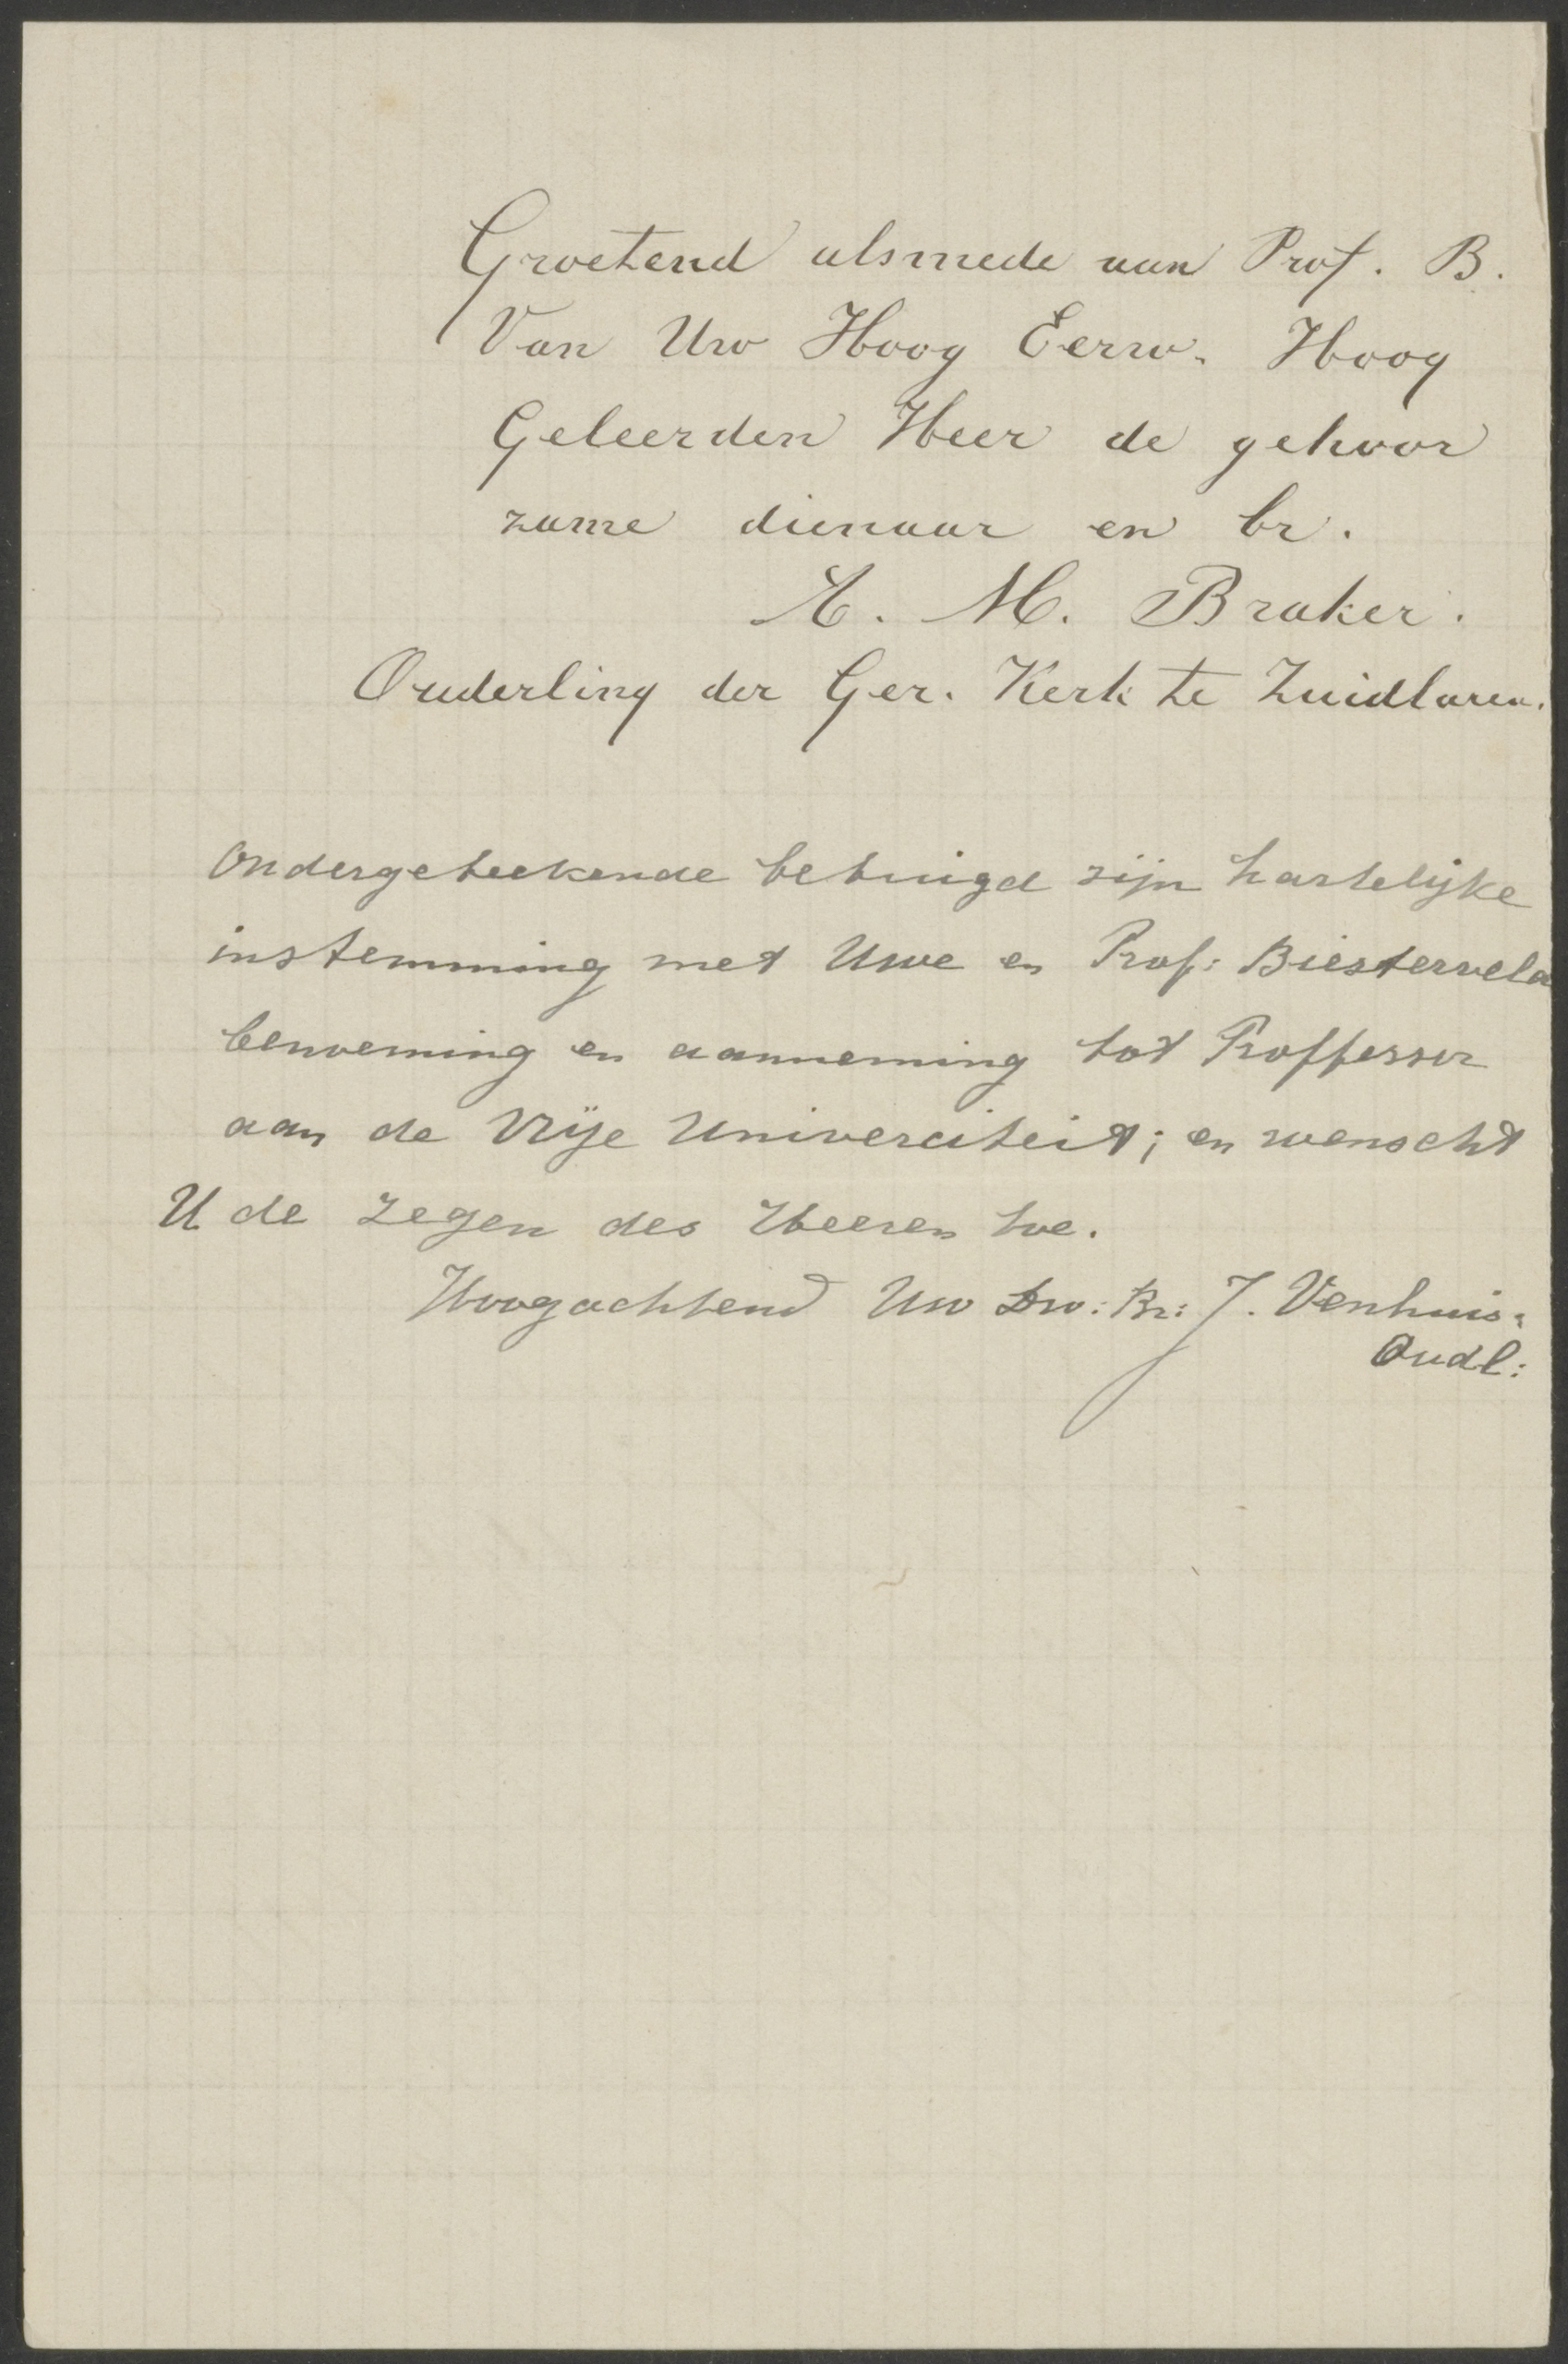 Groetend alsmede aan Prof. B.
Van Uw Hoog Eerw. Hoog
Geleerden Heer de gehoor
zame dienaar en br.
A. M. Braker.
Ouderling der Ger. Kerk te Zuidlaren.
Ondergeteekende betuigd zijn hartelijke
instemming met Uwe en Prof: Biesterveld
benoeming en aanneming tot Proffessor
aan de Vrije Univerciteit; en wenscht
U de zegen des Heeren toe.
Hoogachtend Uw Dw: Br: J. Venhuis.
Oudl: